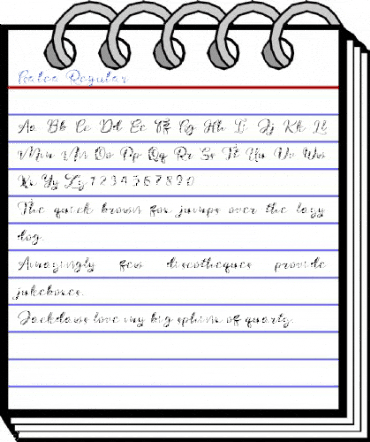 Regular
Aa Bb Cc Dd Ee Ff Gg Hh Ii Jj Kk Ll
Mm Nn Oo Pp Qq Rr Ss Tt Uu Vv Ww
Xx Yy Zz 1 2 3 4 5 6 7 8 9 0
The quick brown fox jumps over the lazy
dog.
Amazingly few discotheques provide
jukeboxes.
Jackdaws love my big sphinx of quartz.